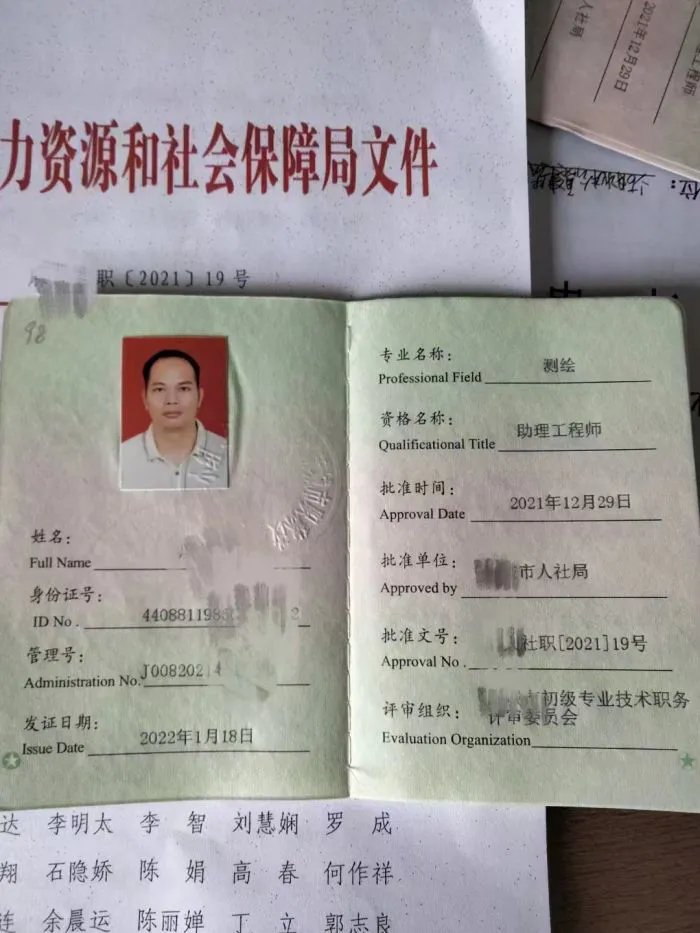 力资源和社会保障局文件
职〔2021〕19号
2021年12月29日
98
姓名：
Full Name
身份证号：
ID No .
管理号：
Administration No.
发证日期：
Issue Date 2022年1月18日
专业名称：
测绘
Professional Field
资格名称：
助理工程师
Qualificational Title
批准时间：
2021年12月29日
Approval Date
批准单位：
市人社局
Approved by
批准文号：
社职[2021]19号
Approval No .
初级专业技术职务
评审组织：
评审委员会
Evaluation Organization
达 李明太 李 智 刘慧娴 罗 成
翔 石隐娇 陈 娟 高 春 何作祥
连 余晨运 陈丽婵 丁 立 郭志良